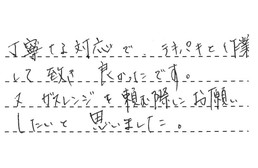 丁寧な対応で、テキパキと作業
して致き良かったです。
又ガスレンジを頼む際にお願い
したいと思いました。